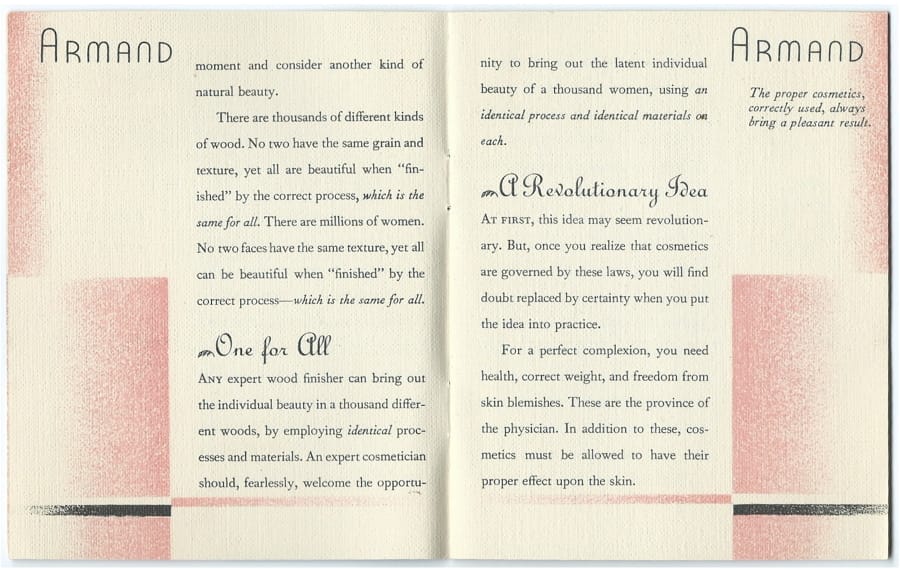 ARMAND
moment and consider another kind of
natural beauty.
There are thousands of different kinds
of wood. No two have the same grain and
texture, yet all are beautiful when “fin-
ished” by the correct process, which is the
same for all. There are millions of women.
No two faces have the same texture, yet all
can be beautiful when “finished” by the
correct process—which is the same for all.
One for All
ANY expert wood finisher can bring out
the individual beauty in a thousand differ-
ent woods, by employing identical proc-
esses and materials. An expert cosmetician
should, fearlessly, welcome the opportu-
nity to bring out the latent individual
beauty of a thousand women, using an
identical process and identical materials on
each.
A Revolutionary Idea
AT FIRST, this idea may seem revolution-
ary. But, once you realize that cosmetics
are governed by these laws, you will find
doubt replaced by certainty when you put
the idea into practice.
For a perfect complexion, you need
health, correct weight, and freedom from
skin blemishes. These are the province of
the physician. In addition to these, cos-
metics must be allowed to have their
proper effect upon the skin.
ARMAND
The proper cosmetics,
correctly used, always
bring a pleasant result.